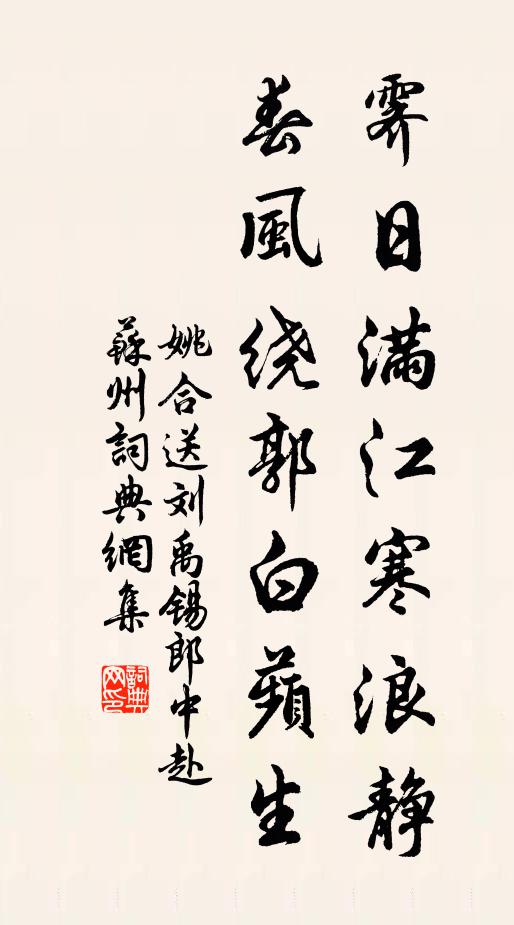 霁日满江寒浪静
春風绕郭白蘋生
姚合送刘禹锡郎中赴
蘇州詞典網集
詞典
网印